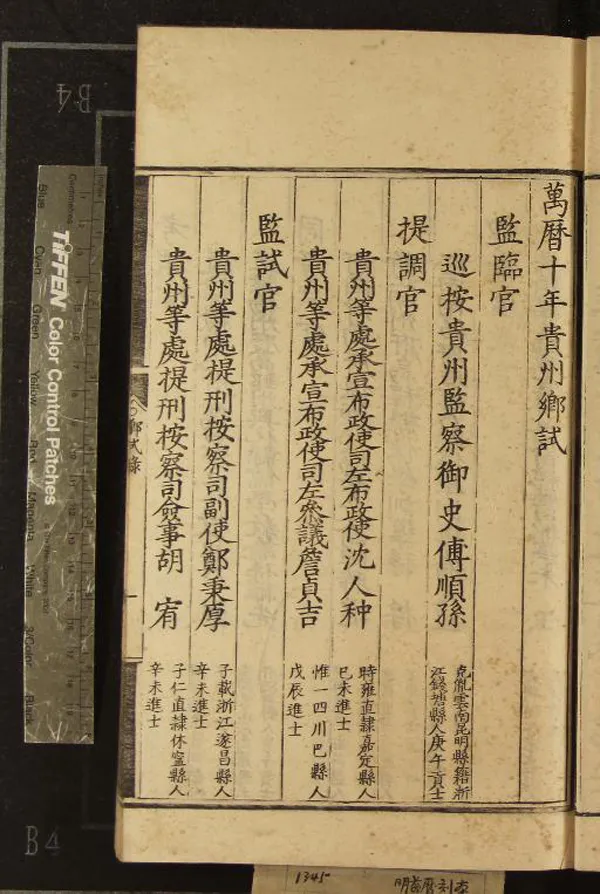 萬曆十年貴州鄉試
監臨官
巡按貴州監察御史傅順孫
克胤雲南昆明縣籍浙
江錢塘縣人庚午貢士
提調官
貴州等處承宣布政使司左布政使沈人种
時雍直隸嘉定縣人
巳未進士
貴州等處承宣布政使司左叅議詹貞吉
惟一四川巴縣人
戊辰進士
監試官
貴州等處提刑按察司副使鄭秉厚
子載浙江遂昌縣人
辛未進士
貴州等處提刑按察司僉事胡宥
子仁直隸休寧縣人
辛未進士
鄉試錄
Inches
Centimetres
TIFFEN Color Control Patches
Blue
Cyan
Green
Yellow
Red
Magenta
White
3/Color
Black
B4
B4
1345